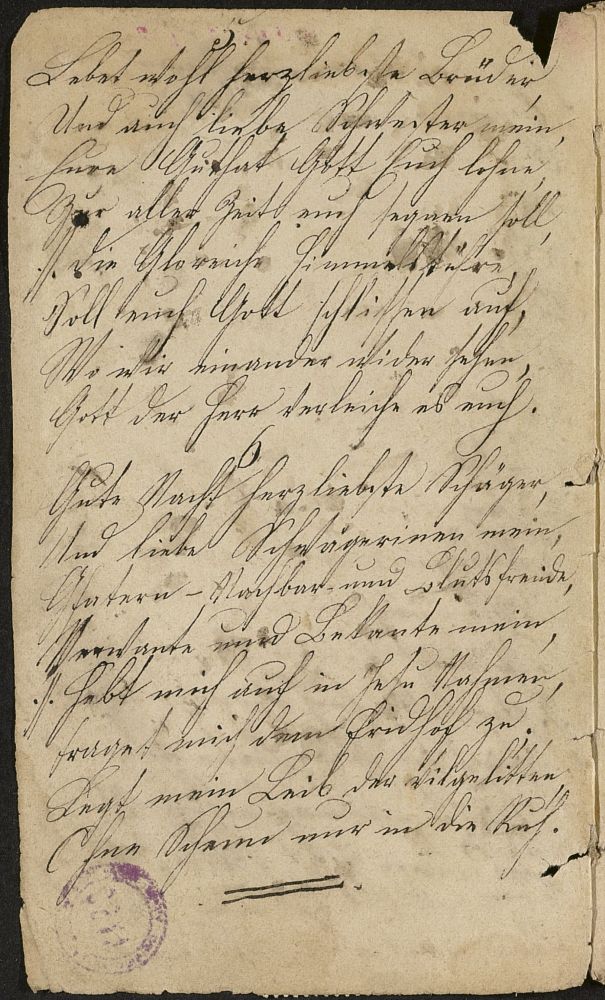 5
Lebet wohl herzliebste Brüder,
Und auch liebe Schwester mein,
Eure Guthat Gott Euch lohne,
Zur aller Zeit euch segnen soll,
.//. Die Gloreiche Himmelsthüre,
Soll euch Gott schlissen auf,
Wo wir einander wider sehen,
Gott der Herr verleiche es euch.
6
Gute Nacht herzliebste Schäger,
Und liebe Schwägerinen mein,
Gfatern - Nachbar- und Blutsfreude,
Verwante und Bekante mein,
.//. Hebt mich auf in Jesu Nahmen,
traget mich dem Fridhof zu.
Legt mein Leib der vilgelitten
Ohne Scheun nur in die Ruh.